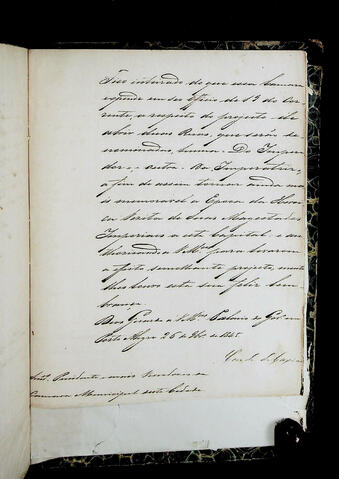 Fico inteirado de que essa Camara
expende em seu Officio de 19 do Cor
rente, a respeito do projecto de
abrir duas Ruas, que serão de
nominadas, huma - Do Impera
dor - outra - Da Imperatriz,
a fim de assim tornar ainda ma
is memoravel a Epoca da Heroi
ca Visita de Suas Magestades
Imperiaes a esta Capital: e au
thorisando a V.Mces para levarem
a effeito semelhante projecto, muito
lhes louvo esta sua feliz lem
brança.
Deos Guarde a V.Mces Palacio do Gov.º em
Porto Alegre 26 de 9br.º de 1845
Conde de Caxias
Senr.s Presidente, e mais Vereadores da
Camara Municipal desta Cidade